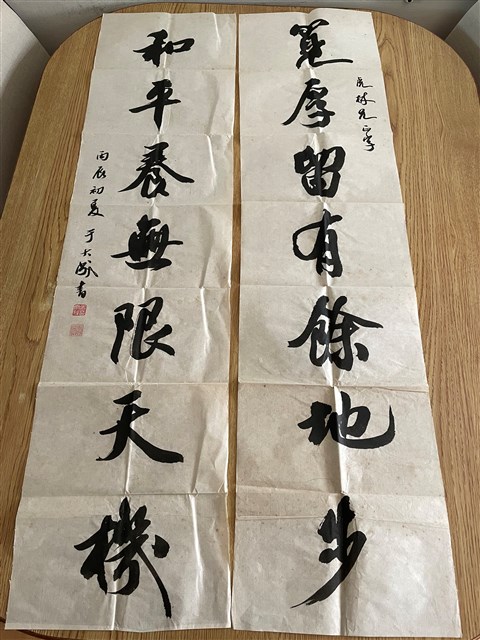 寬厚留有餘地步
兄正字
和平養無限天機
丙辰初夏于大成書